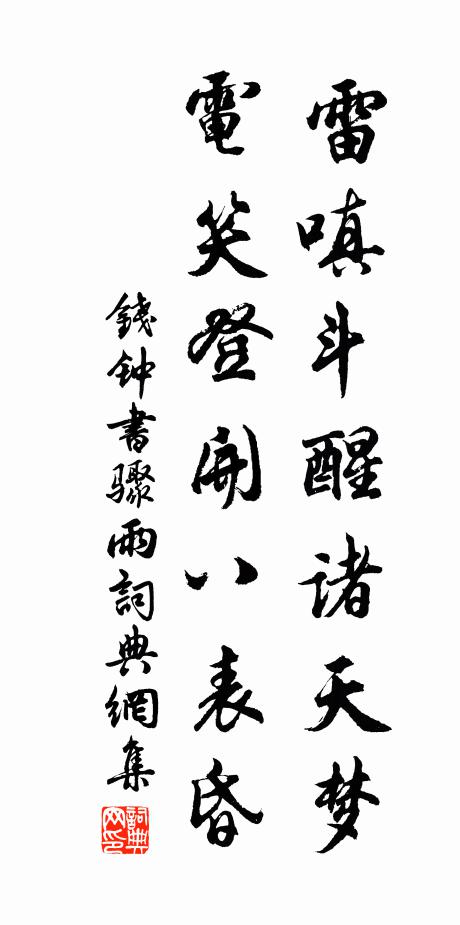 雷嗔斗醒诸天梦
電笑登開八表昏
錢钟書驟雨詞典網集
詞典网印